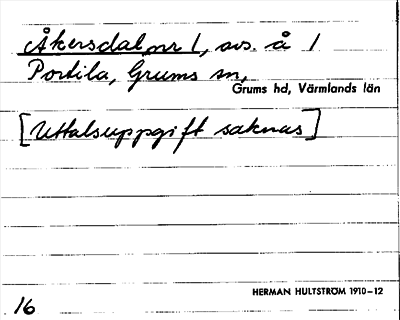 Åkersdal nr 1, avs. å 1
Portila, Grums sn,
Grums hd, Värmlands län
[Uttalsuppgift saknas]
HERMAN HULTSTRÖM 1910–12
16